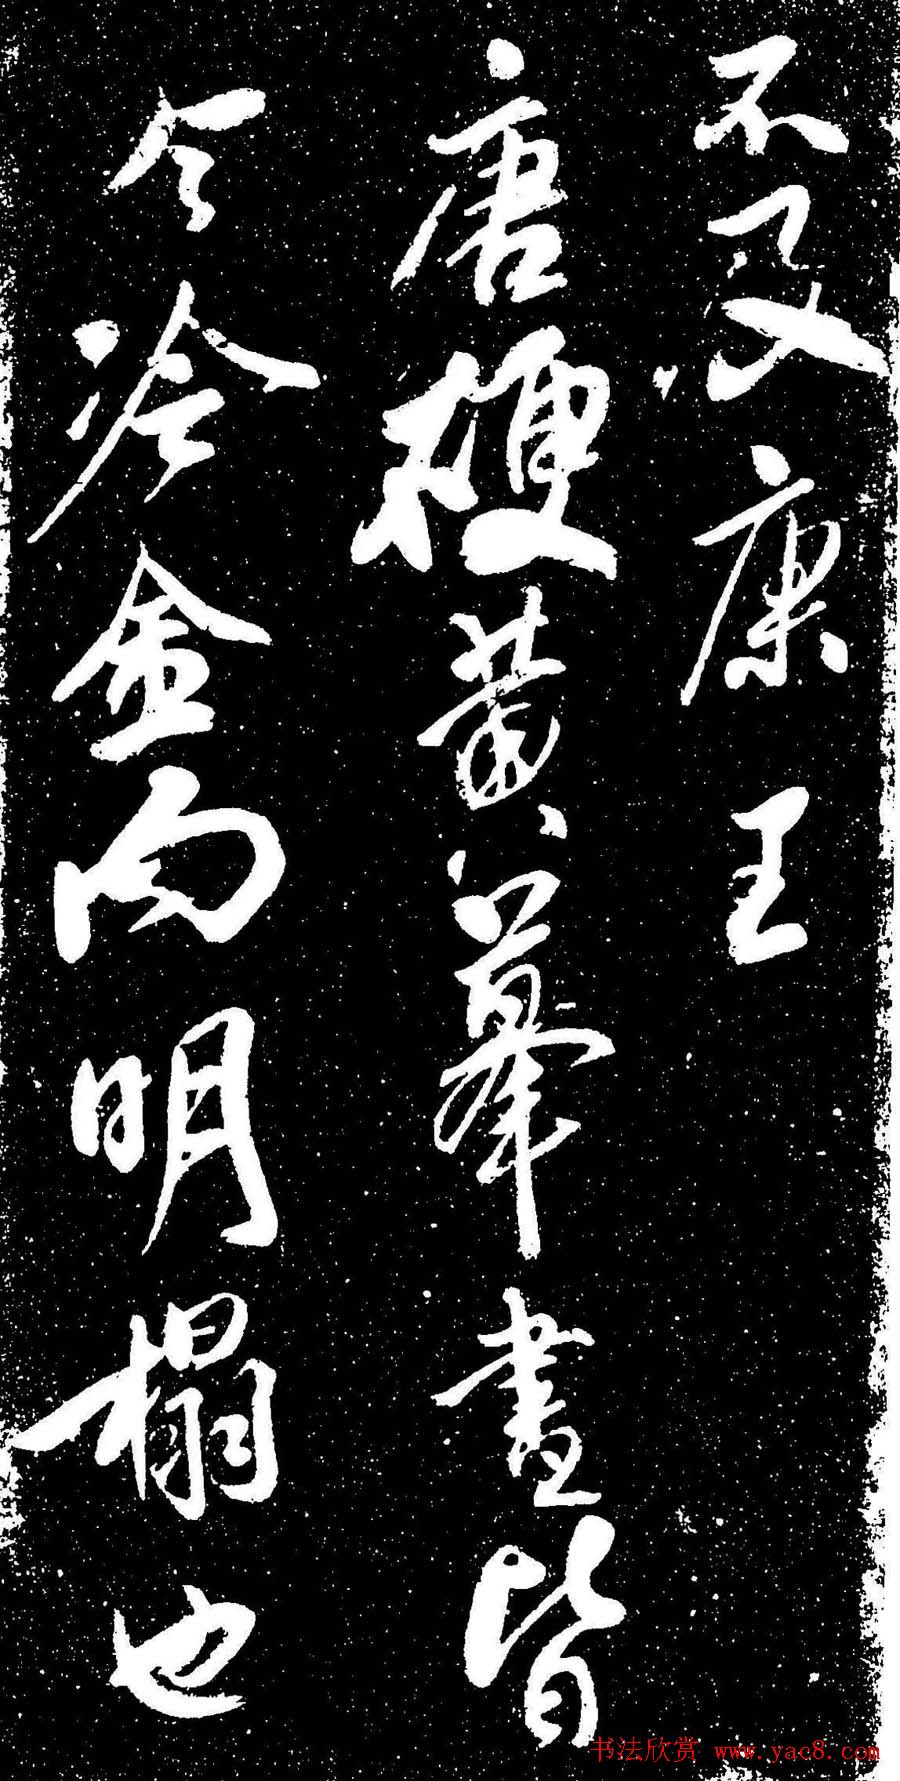 不及康王
唐梗黄摹書皆
今冷金向明榻也
书法欣赏 www.yac8.com